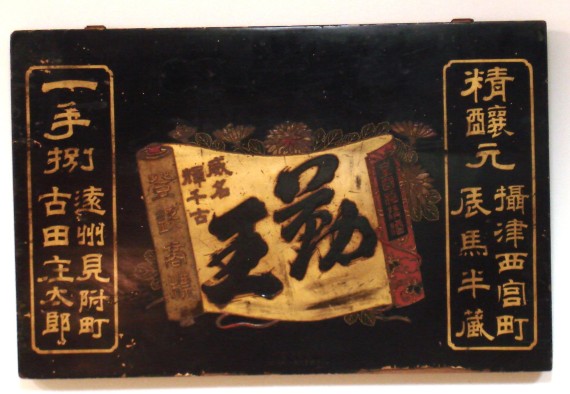 精釀元
攝津西宮町
辰馬半藏
勤王
威名
輝千古
登錄商標
一手捌
遠州見附町
古田庄太郎